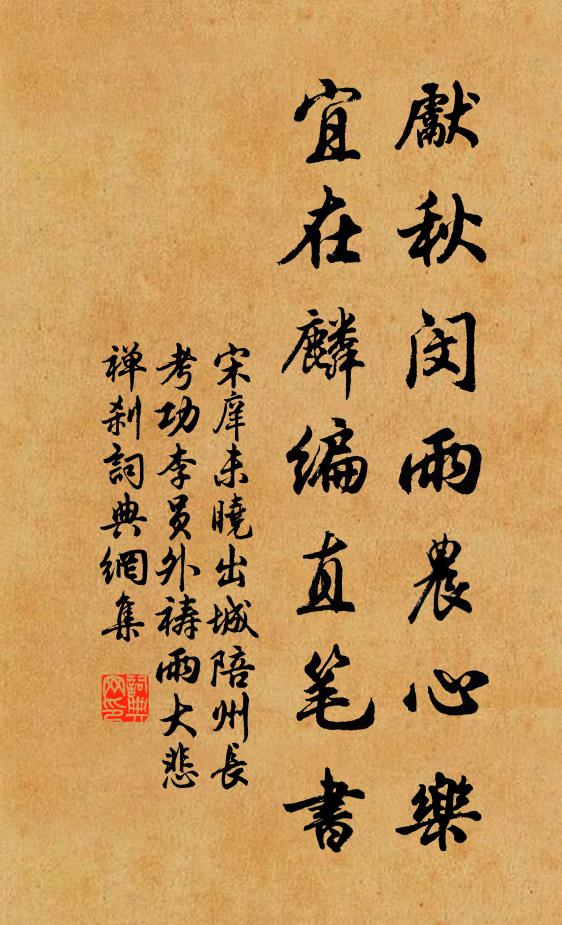 獻秋閔雨農心樂
宜在麟編直笔書
宋庠未曉出城陪州長
考功李员外禱雨大悲
禅刹詞典網集
詞典網印